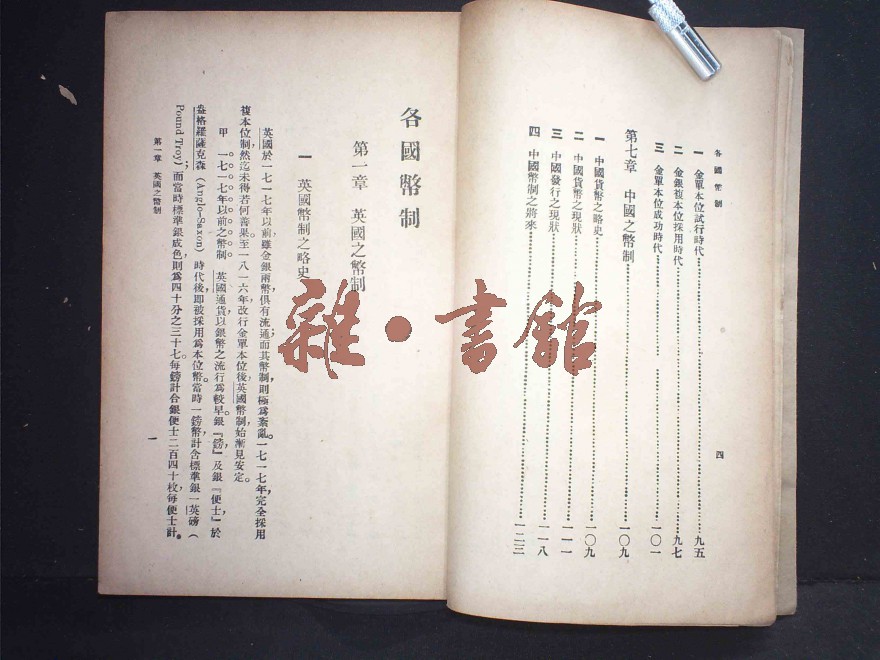 各國幣制
一 金單本位試行時代……九五
二 金銀複本位採用時代……九七
三 金單本位成功時代……一〇一
第七章 中國之幣制……一〇九
一 中國貨幣之略史……一〇九
二 中國貨幣之現狀……一一一
三 中國發行之現狀……一一八
四 中國幣制之將來……一二三
四
各國幣制
第一章 英國之幣制
一 英國幣制之略史
英國於一七一七年以前,雖金銀兩幣,俱有流通,而其幣制,則極為紊亂。一七一七年,完全採用
複本位制,然迄未得若何善果。至一八一六年改行金單本位後,英國幣制,始漸見安定。
甲 一七一七年以前之幣制 英國通貨,以銀幣之流行為較早。銀『鎊』及銀『便士』,於
盎格羅薩克森(Anglo-Saxon)時代後,即被採用為本位幣。當時一鎊幣計含標準銀一英磅(
Pound Troy),而當時標準銀成色,則為四十分之三十七,每鎊計合銀便士二百四十枚,每便士計
第一章 英國之幣制
一
雜·書館